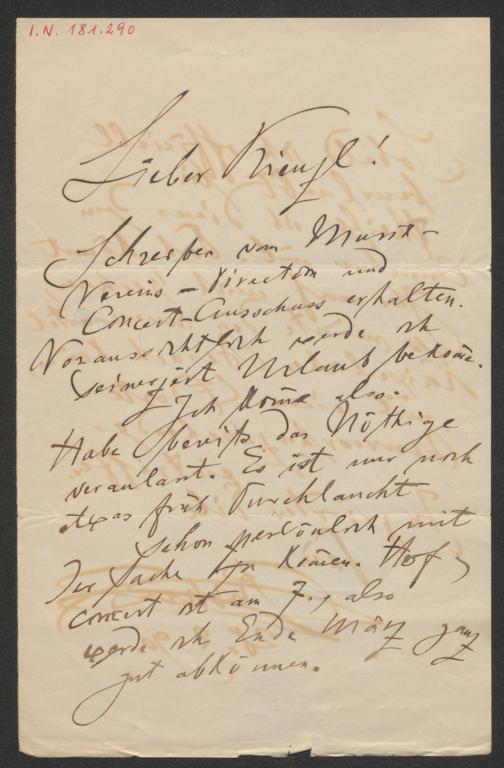 I.N. 181.290
Lieber Kienzl!
Schreiben vom Musik-
Vereins-Direction und
Concert-Ausschuss erhalten.
Voraussichtlich werde ich
seinerzeit Urlaub bekom̅e.
Ich kom̅e also.
Habe bereits das Nöthige
veranlasst. Es ist nur noch
etwas früh Durchlaucht
schon persönlich mit
der Sache zu kom̅en. Hof-
concert ist am 7., also
werde ich Ende März ganz
gut abkönnen.